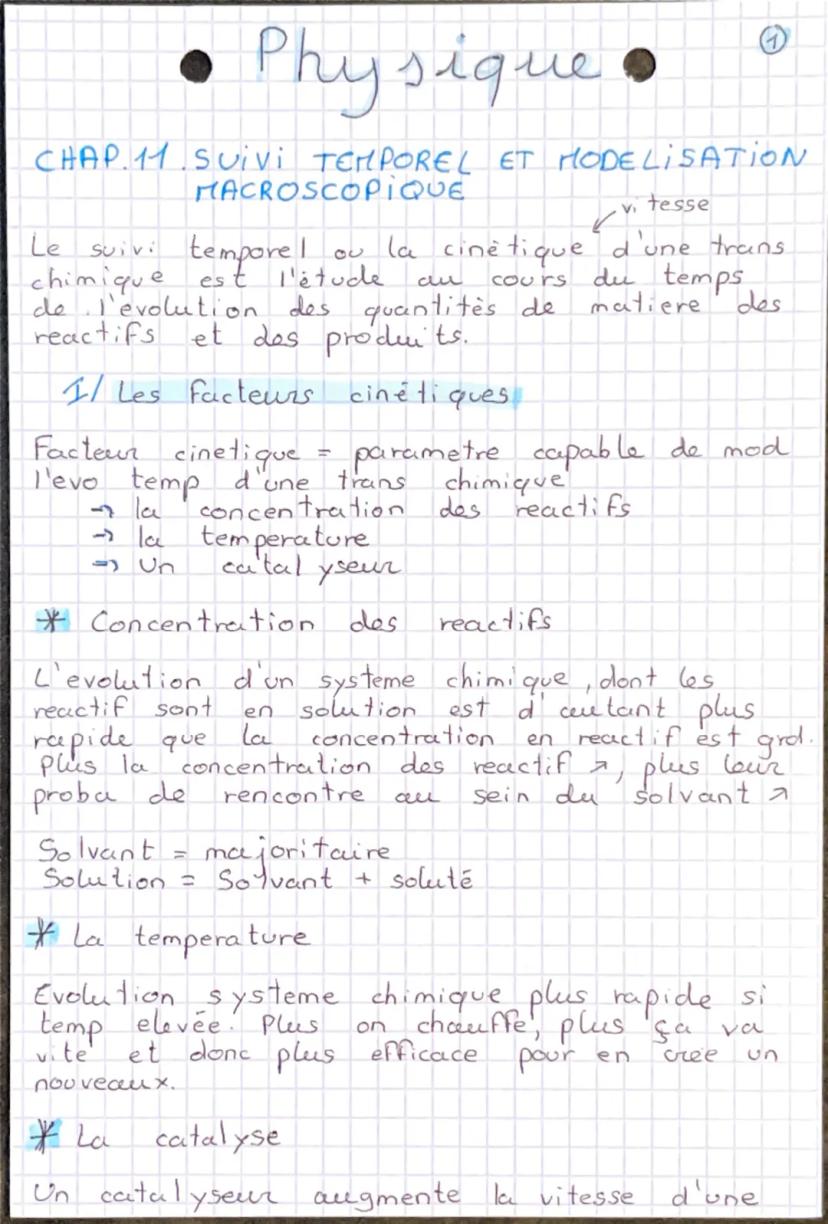 Physique
1
CHAP.11. SUIVI TEMPOREL ET MODELISATION
MACROSCOPIQUE
vitesse
Le suivi temporel ou la cinétique d'une trans
chimique est l'étude au cours du temps
de l'évolution des quantités de matiere des
reactifs et des produits.
I/ Les facteurs cinétiques
Facteur cinetique = parametre capable de mod
l'evo temp d'une trans chimique
→ la concentration des reactifs
→ la temperature
→ Un catalyseur
* Concentration des reactifs
L'evolution d'un systeme chimique, dont les
reactif sont en solution est d'autant plus
rapide que la concentration en reactif est grd.
Plus la concentration des reactif ↗, plus leur
proba de rencontre au sein du solvant ↗
Solvant = majoritaire
Solution = Solvant + soluté
* La temperature
Evolution systeme chimique plus rapide si
temp elevée. Plus on chauffe, plus ça va
vite et donc plus efficace pour en crée un
nouveaux.
* La catalyse
Un catalyseur augmente la vitesse d'une